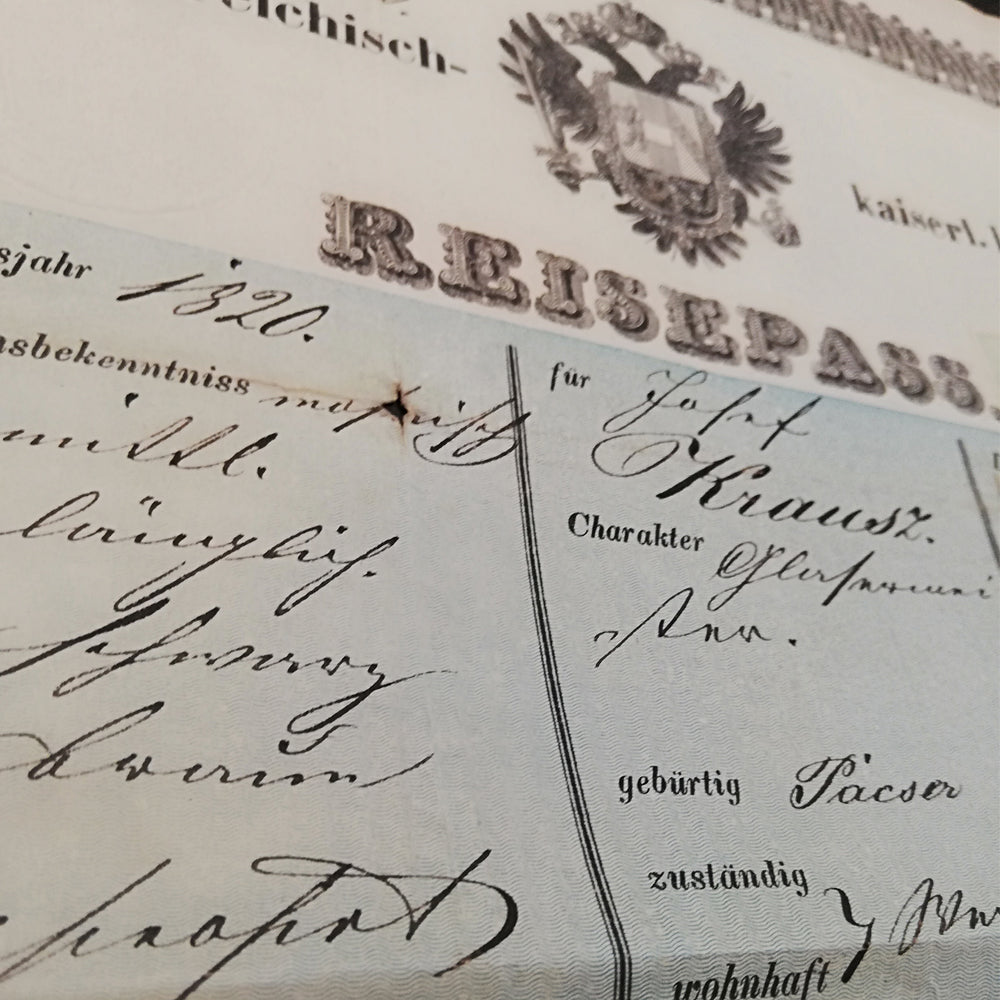 reichisch-
kaiserl. k
REISEPASS.
sjahr 1820.
nsbekenntniss mosaisch
mittl.
länglich.
schwarz
braun
für Josef
Krausz.
Charakter Glasermei
ster.
gebürtig Pácser
zuständig
wohnhaft